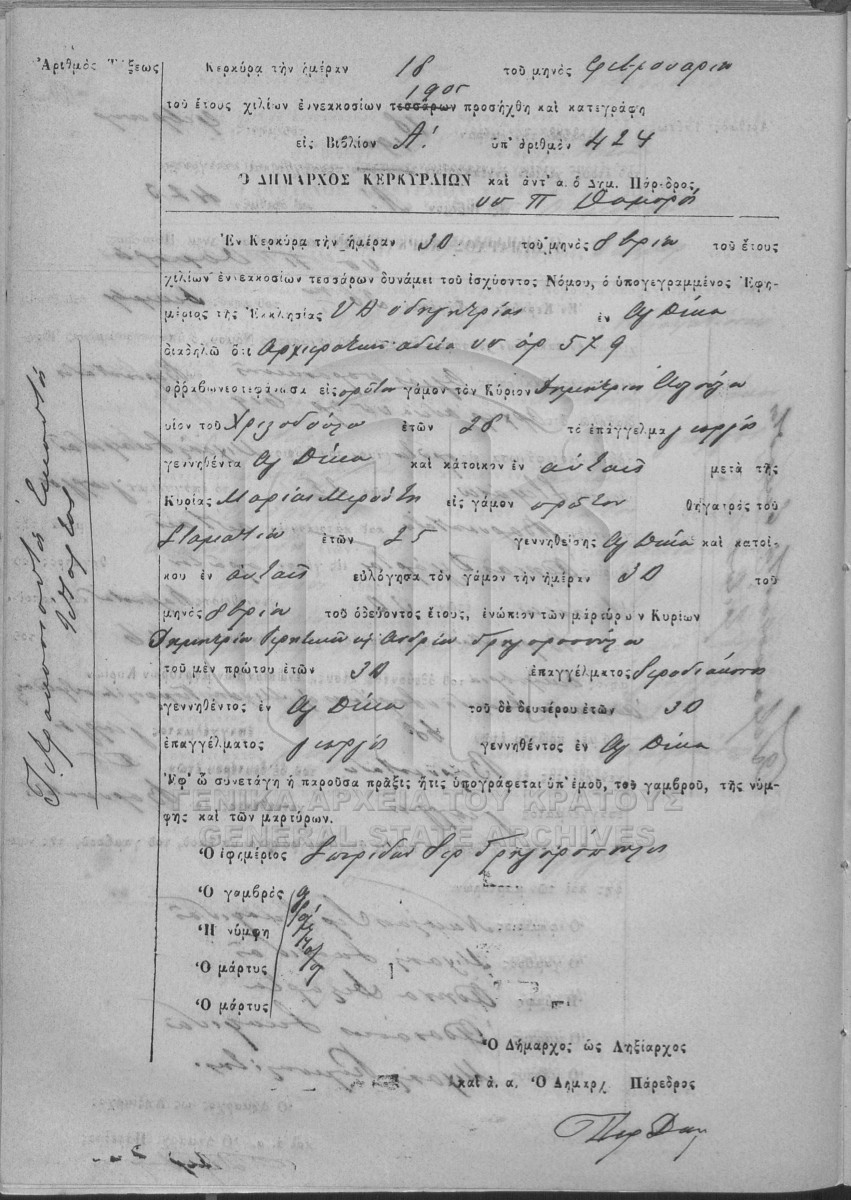 Ἀριθμὸς Τάξεως
Κερκύρᾳ τὴν ἡμέραν 18 τοῦ μηνὸς Φεβρουαρίου
1905
τοῦ ἔτους χιλίων ἐννεακοσίων τεσσάρων προσήχθη καὶ κατεγράφη
εἰς Βιβλίον Α! ὑπ' ἀριθμὸν 424
Ὁ ΔΗΜΑΡΧΟΣ ΚΕΡΚΥΡΑΙΩΝ καὶ ἀντ' α. ὁ Δημ. Πάρεδρος
Π
Ἐν Κερκύρᾳ τὴν ἡμέραν 30 τοῦ μηνὸς 8βρίου τοῦ ἔτους
χιλίων ἐννεακοσίων τεσσάρων δυνάμει τοῦ ἰσχύοντος Νόμου, ὁ ὑπογεγραμμένος Ἐφη-
μέριος τῆς Ἐκκλησίας ΥΘ Οδηγητρίας ἐν Αγ Δέκα
διαδηλῶ ὅτι Αρχιερατικῇ αδεία υπ αρ 579
ἀρραβωνεστεφάνωσα εἰς πρῶτον γάμον τὸν Κύριον Δημήτριον
υἱὸν τοῦ Χριστοδούλου ἐτῶν 28 τὸ ἐπάγγελμα γεωργός
γεννηθέντα Αγ Δέκα καὶ κάτοικον ἐν αὐταῖς μετὰ τῆς
Κυρίας Μαρίας εἰς γάμον πρῶτον θηγατρὸς τοῦ
Σταματίου ἐτῶν 25 γεννηθείσης Αγ Δέκα καὶ κατοί-
κου ἐν αὐταῖς εὐλόγησα τὸν γάμον τὴν ἡμέραν 30 τοῦ
μηνὸς 8βρίου τοῦ ὁδεύοντος ἔτους, ἐνώπιον τῶν μαρτύρων Κυρίων
Δημητρίου Ανδρέα Γρηγοροπούλου
τοῦ μὲν πρώτου ἐτῶν 30 ἐπαγγέλματος Ιεροδιάκονος
γεννηθέντος ἐν Αγ Δέκα τοῦ δὲ δευτέρου ἐτῶν 30
ἐπαγγέλματος γεωργός γεννηθέντος ἐν Αγ Δέκα
Ἐφ' ᾧ συνετάγη ἡ παροῦσα πρᾶξις ἥτις ὑπογράφεται ὑπ' ἐμοῦ, τοῦ γαμβροῦ, τῆς νύμ-
φης καὶ τῶν μαρτύρων.
ΓΕΝΙΚΑ ΑΡΧΕΙΑ ΤΟΥ ΚΡΑΤΟΥΣ
GENERAL STATE ARCHIVES
Ὁ ἐφημέριος Σπυρίδων Ιερ Γρηγορόπουλος
Ὁ γαμβρὸς
Ἡ νύμφη
Ὁ μάρτυς
Ὁ μάρτυς
Ὁ Δήμαρχος ὡς Ληξίαρχος
καὶ ἀ. α. Ὁ Δημαρχ Πάρεδρος